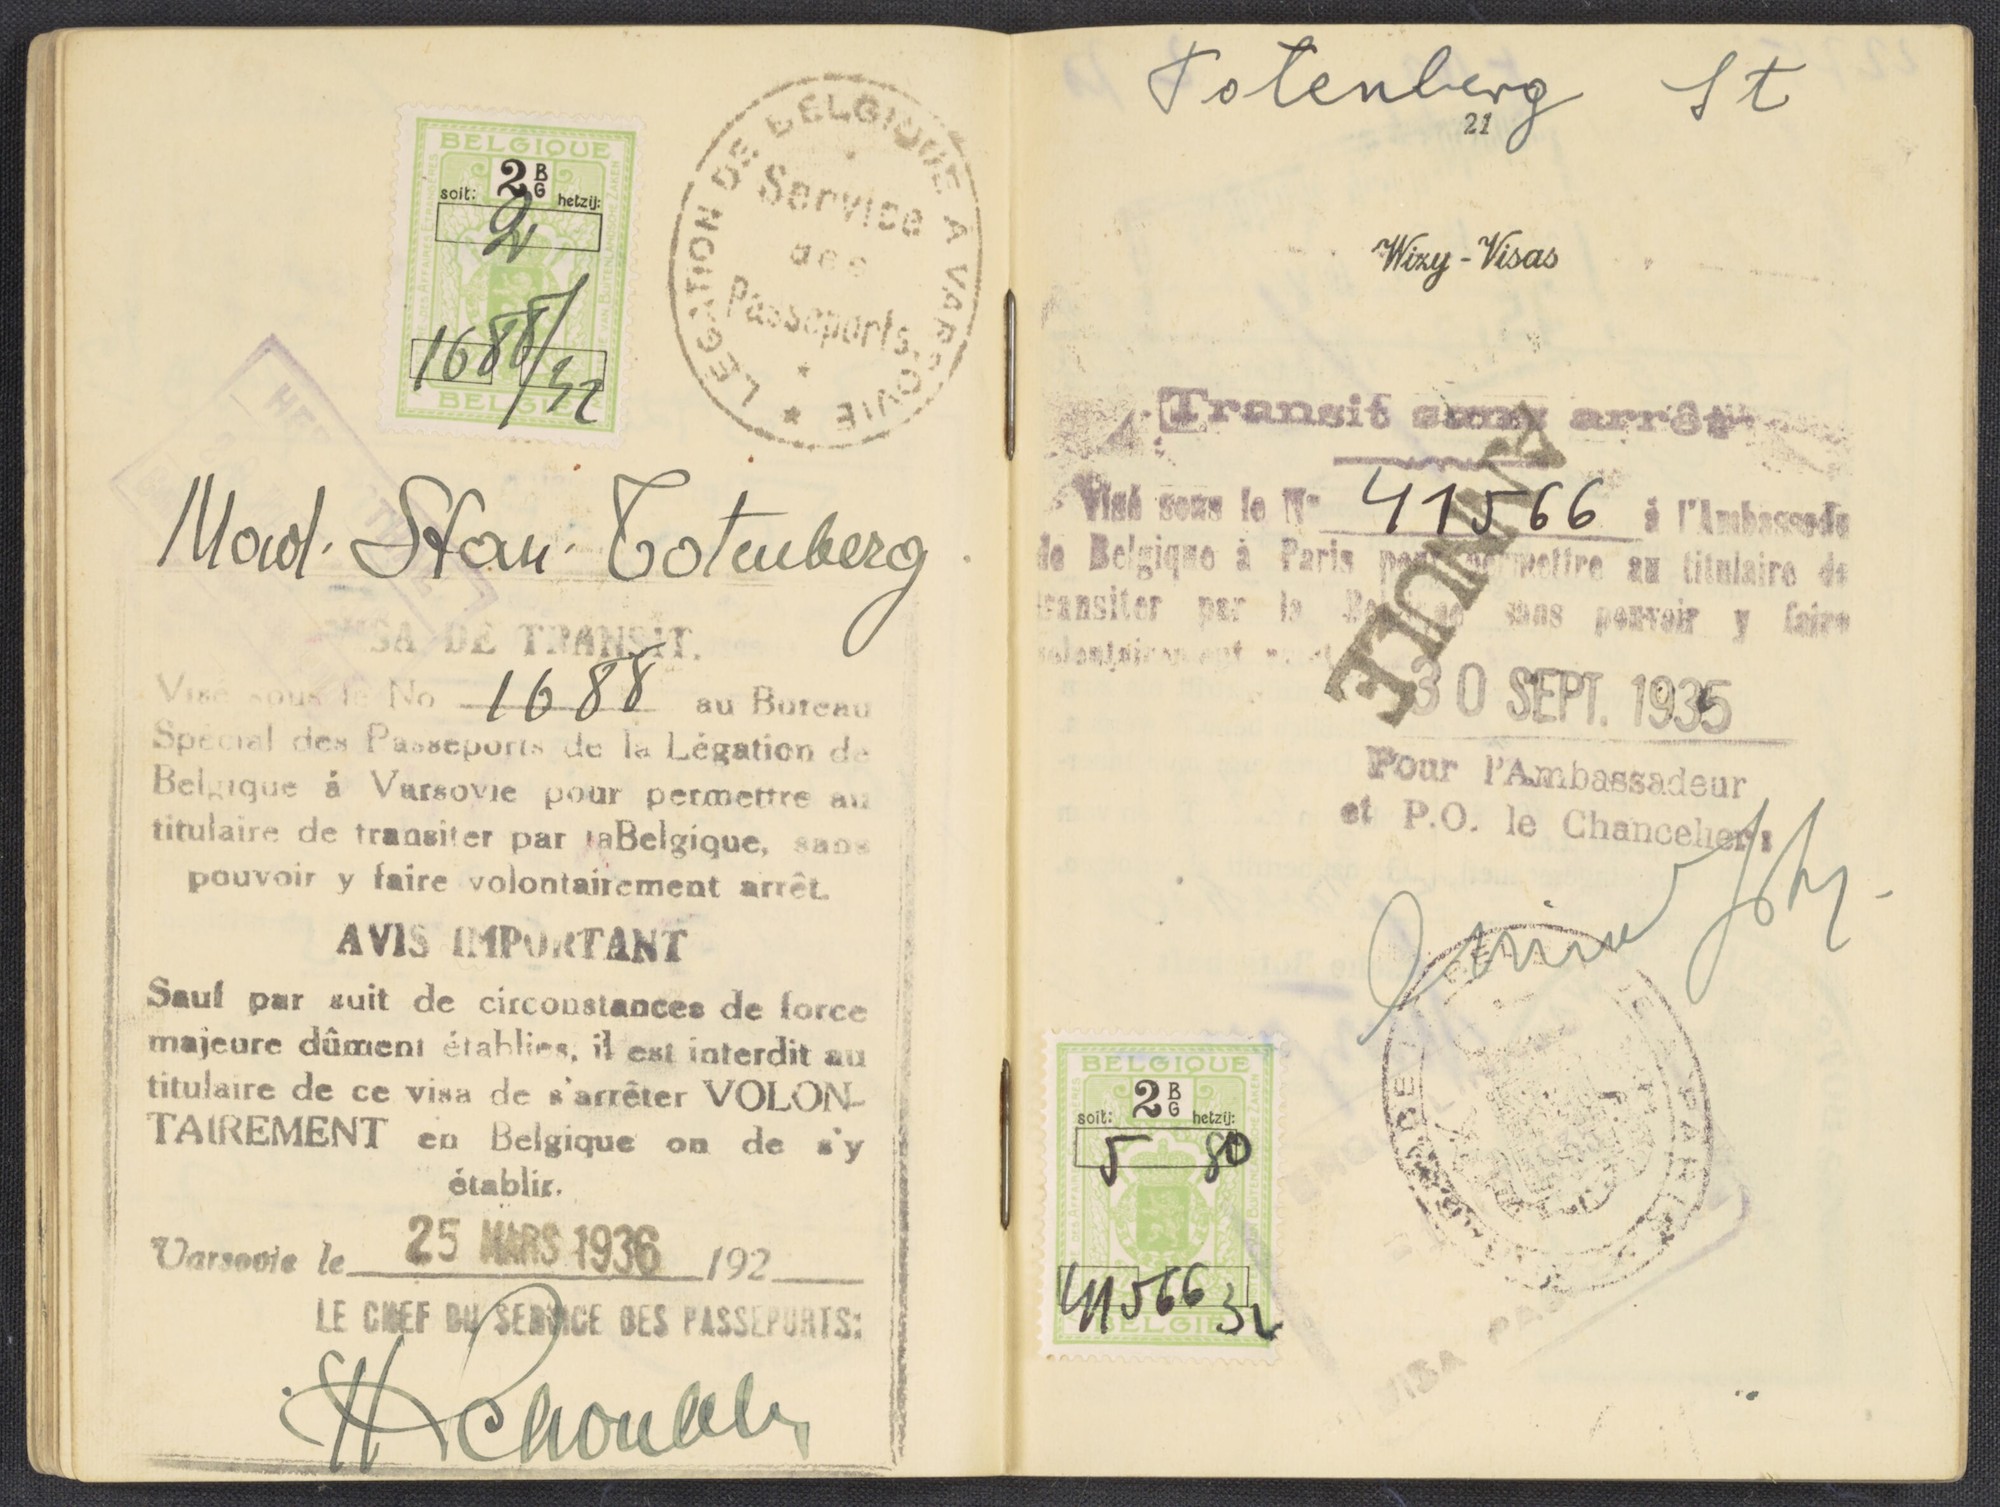 BELGIQUE
2 B G
soit: hetzij:
2
1688/32
BELGIË
LÉGATION DE BELGIQUE À VARSOVIE
Service
des
Passeports.
Totenberg
VISA DE TRANSIT.
Visé sous le No 1688 au Bureau
Spécial des Passeports de la Légation de
Belgique à Varsovie pour permettre au
titulaire de transiter par la Belgique, sans
pouvoir y faire volontairement arrêt.
AVIS IMPORTANT
Sauf par suit de circonstances de force
majeure dûment établies, il est interdit au
titulaire de ce visa de s'arrêter VOLON-
TAIREMENT en Belgique on de s'y
établir.
Varsovie le 25 MARS 1936 /192
LE CHEF DU SERVICE DES PASSEPORTS:
Totenberg St
21
Wizy-Visas
Transit sans arrêt
ANNULÉ
Visé sous le No 41566 à l'Ambassade
de Belgique à Paris pour permettre au titulaire de
transiter par la Belgique sans pouvoir y faire
volontairement
30 SEPT. 1935
Pour l'Ambassadeur
et P.O. le Chancelier:
BELGIQUE
2 B G
soit: hetzij:
5 80
41566 32
BELGIË